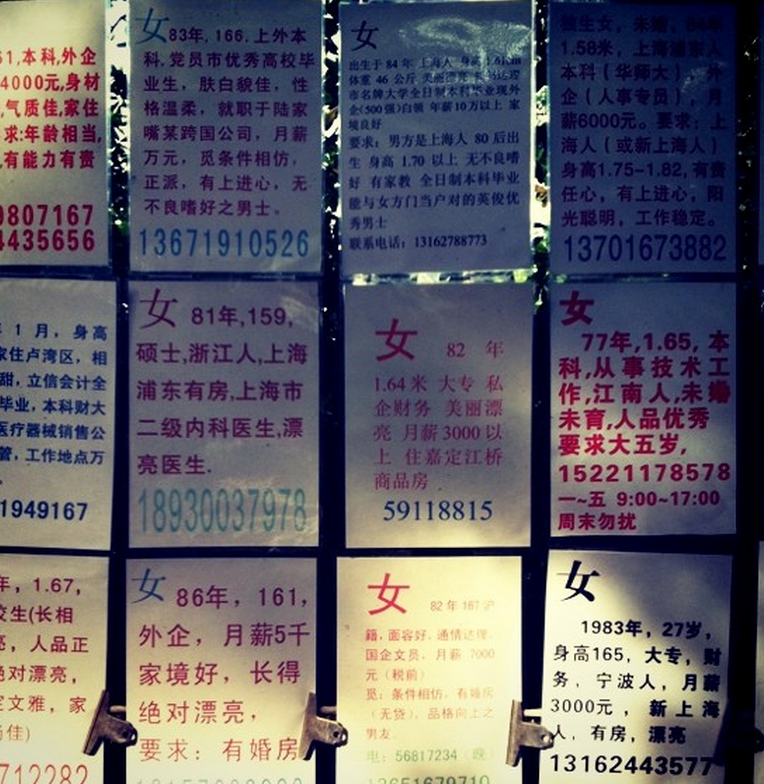 61,本科,外企
4000元,身材
,气质佳,家住
求:年龄相当,
有能力有责
9807167
4435656
女83年，166，上外本
科，党员市优秀高校毕
业生，肤白貌佳，性
格温柔，就职于陆家
嘴某跨国公司，月薪
万元，觅条件相仿，
正派，有上进心，无
不良嗜好之男士。
13671910526
女
出生于 84 年 上海人 身高 1.61cm
体重 46 公斤 美丽漂亮
市名牌大学全日制本科毕业现外
企(500 强)白领 年薪 10 万以上 家
境良好
要求：男方是上海人 80 后出
生 身高 1.70 以上 无不良嗜
好 有家教 全日制本科毕业
能与女方门当户对的英俊优
秀男士
联系电话：13162788773
独生女，未婚，84年
1.58米，上海浦东人
本科（华师大），外
企（人事专员），月
薪6000元。要求：上
海人（或新上海人）
身高1.75-1.82,有责
任心，有上进心，阳
光聪明，工作稳定。
13701673882
年 1 月，身高
家住卢湾区，相
甜，立信会计全
毕业，本科财大
医疗器械销售公
管，工作地点万
1949167
女 81年,159,
硕士,浙江人,上海
浦东有房,上海市
二级内科医生,漂
亮医生.
18930037978
女 82 年
1.64 米 大专 私
企财务 美丽漂
亮 月薪 3000 以
上 住嘉定江桥
商品房
59118815
女
77年,1.65,本
科,从事技术工
作,江南人,未婚
未育,人品优秀
要求大五岁,
15221178578
一~五 9:00~17:00
周末勿扰
年，1.67,
校生(长相
亮，人品正
绝对漂亮，
文雅，家
佳)
712282
女 86年，161，
外企，月薪5千
家境好，长得
绝对漂亮，
要求：有婚房
女 82 年 167 沪
籍，面容好，通情达理，
国企文员，月薪 7000
元（税前）
觅：条件相仿，有婚房
（无贷），品格向上之
男友。
电：56817234（晚）
13651679710
女
1983年，27岁，
身高165，大专，财
务，宁波人，月薪
3000元，新上海
人，有房，漂亮
13162443577